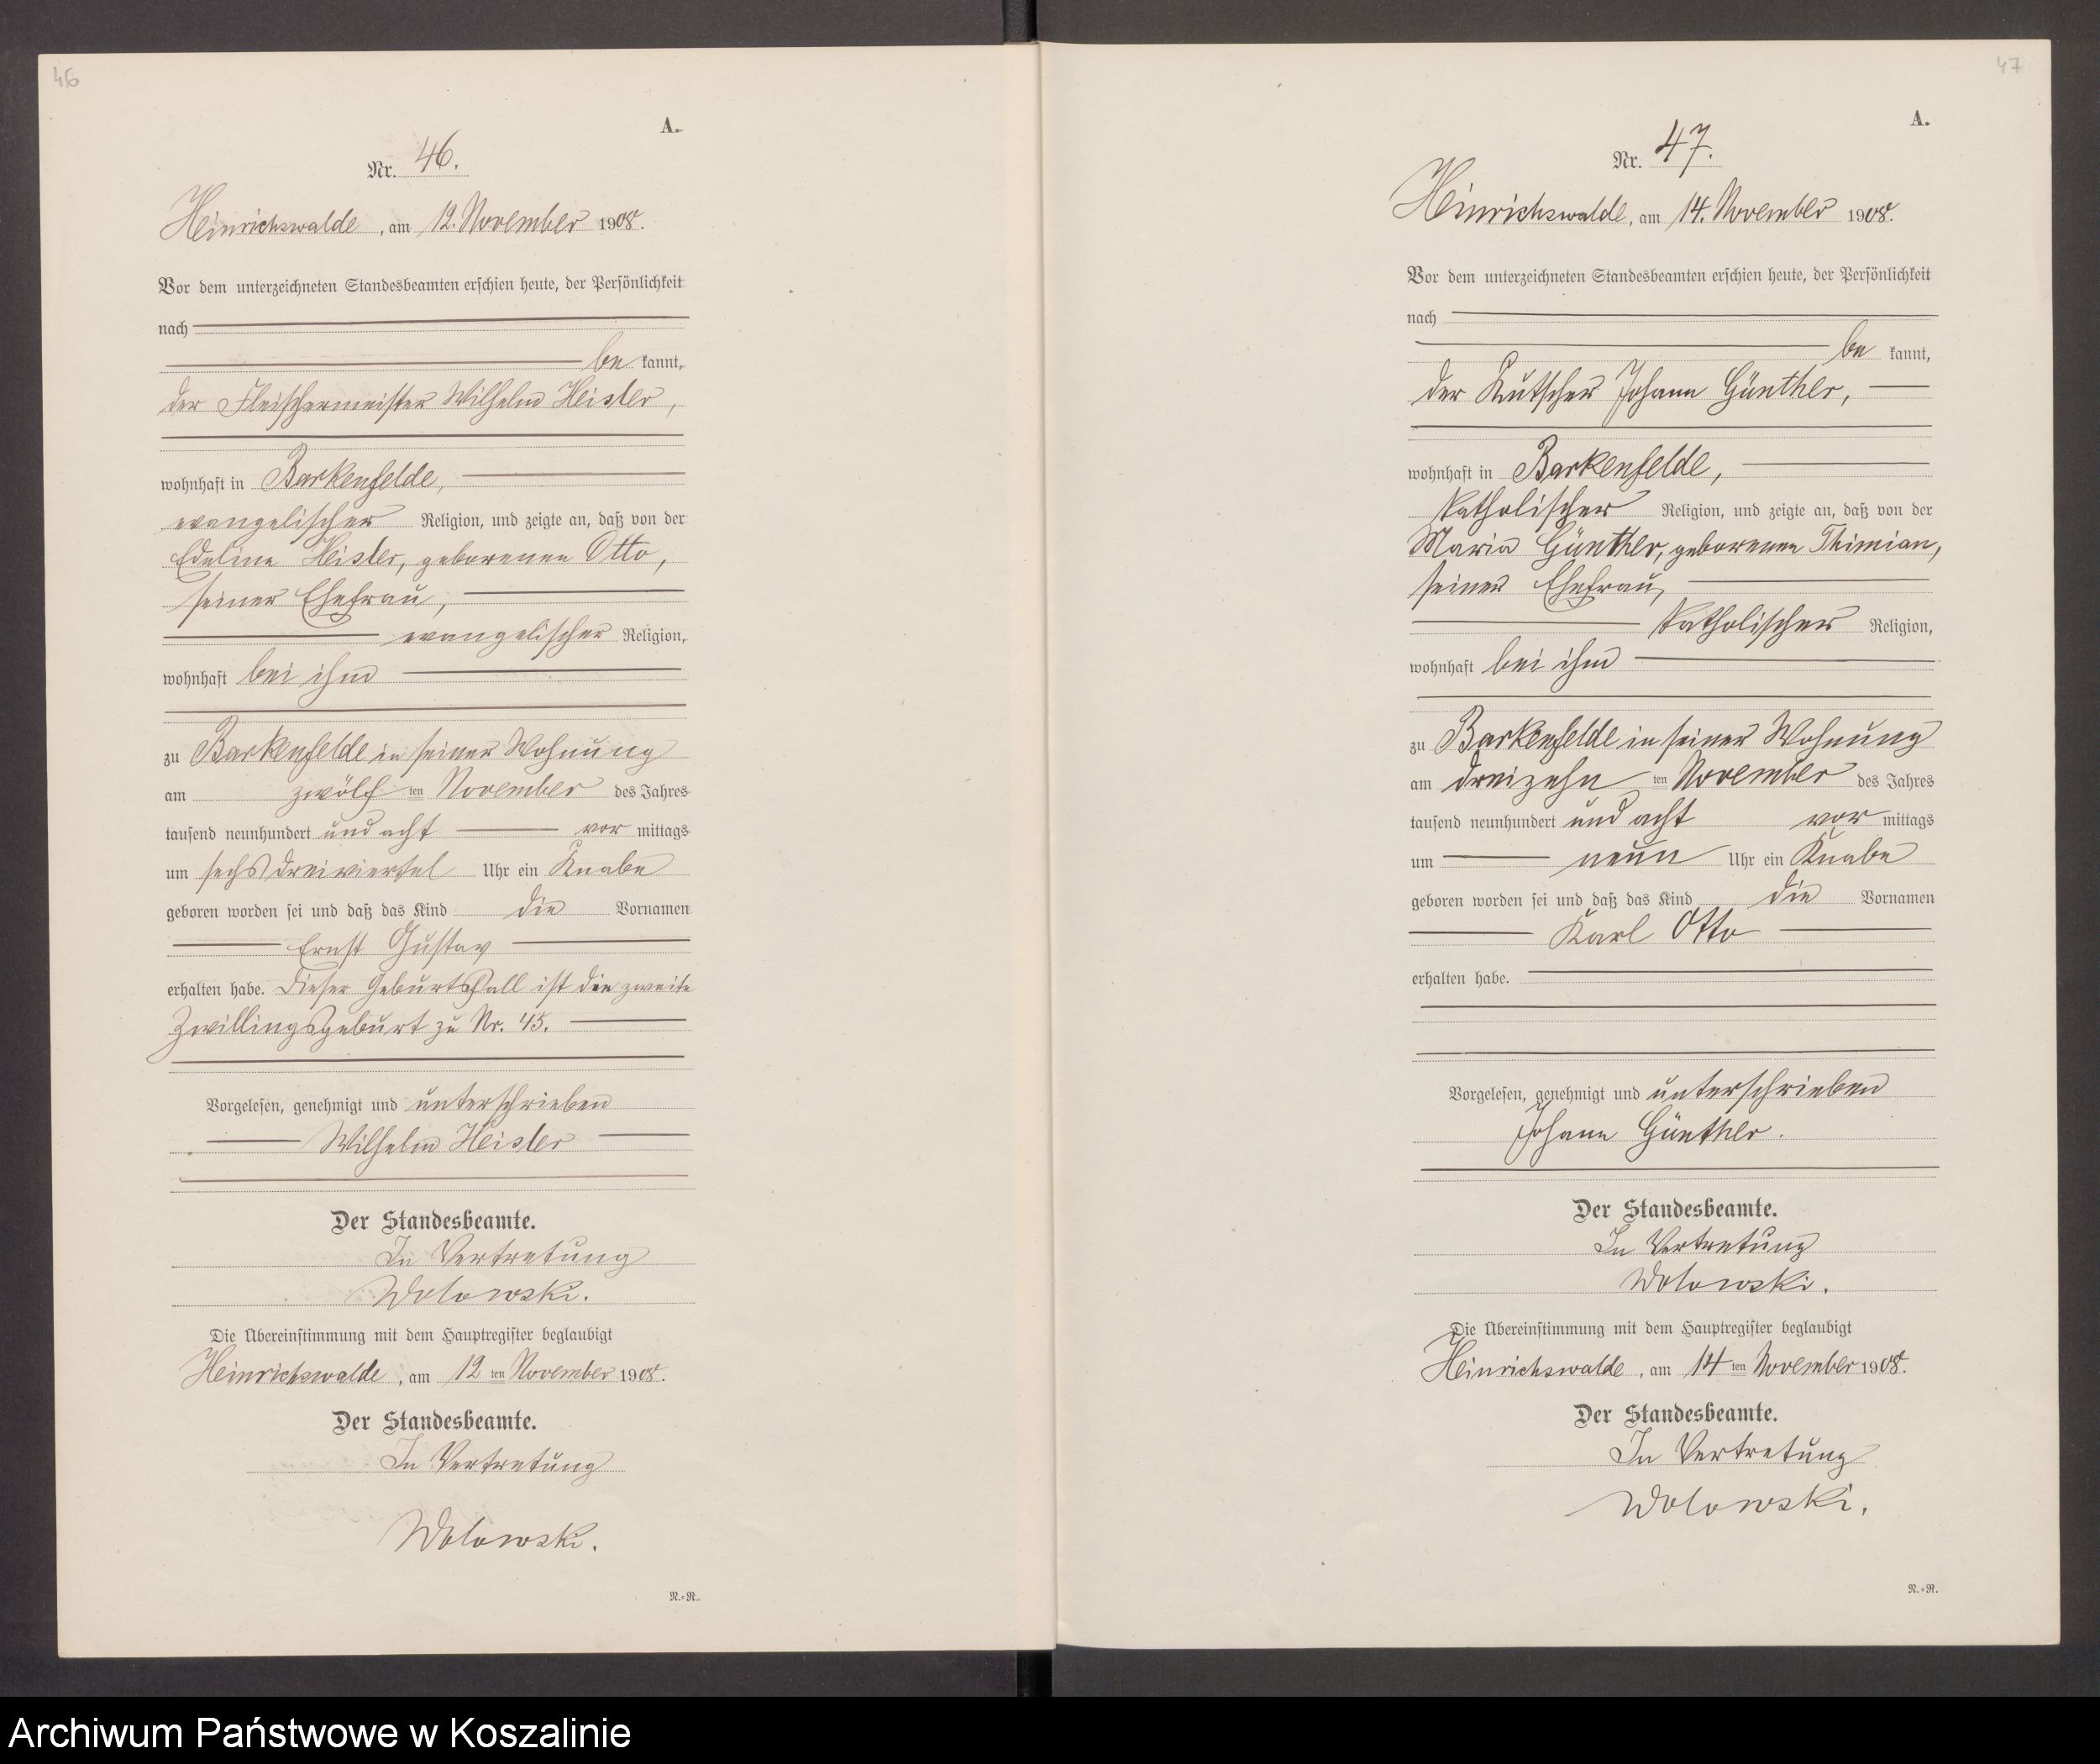 46
A.
Nr. 46.
Heinrichswalde, am 12. November 1908.
Vor dem unterzeichneten Standesbeamten erschien heute, der Persönlichkeit
nach
be kannt,
der Fleischermeister Wilhelm Heisler,
wohnhaft in Barkenfelde,
evangelischer Religion, und zeigte an, daß von der
Edeline Heisler, geborenen Otto,
seiner Ehefrau,
evangelischer Religion,
wohnhaft bei ihm
zu Barkenfelde in seiner Wohnung
am zwölf ten November des Jahres
tausend neunhundert und acht vor mittags
um sechs dreiviertel Uhr ein Knabe
geboren worden sei und daß das Kind die Vornamen
Ernst Gustav
erhalten habe. Dieser Geburtsfall ist die zweite
Zwillingsgeburt zu Nr. 45.
Vorgelesen, genehmigt und unterschrieben
Wilhelm Heisler
Der Standesbeamte.
In Vertretung
Wolowski.
Die Übereinstimmung mit dem Hauptregister beglaubigt
Heinrichswalde, am 12 ten November 1908.
Der Standesbeamte.
In Vertretung
Wolowski.
N.=R.
47
A.
Nr. 47.
Heinrichswalde, am 14. November 1908.
Vor dem unterzeichneten Standesbeamten erschien heute, der Persönlichkeit
nach
be kannt,
der Kutscher Johann Günther,
wohnhaft in Barkenfelde,
katholischer Religion, und zeigte an, daß von der
Maria Günther, geborenen Thimian,
seiner Ehefrau,
katholischer Religion,
wohnhaft bei ihm
zu Barkenfelde in seiner Wohnung
am dreizehn ten November des Jahres
tausend neunhundert und acht vor mittags
um neun Uhr ein Knabe
geboren worden sei und daß das Kind die Vornamen
Karl Otto
erhalten habe.
Vorgelesen, genehmigt und unterschrieben
Johann Günther.
Der Standesbeamte.
In Vertretung
Wolowski.
Die Übereinstimmung mit dem Hauptregister beglaubigt
Heinrichswalde, am 14 ten November 1908.
Der Standesbeamte.
In Vertretung
Wolowski.
N.=R.
Archiwum Państwowe w Koszalinie